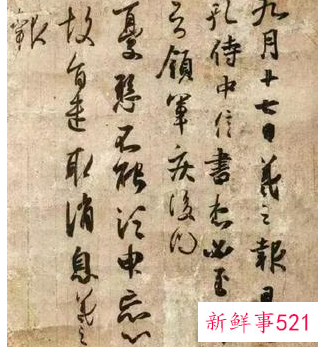 九月十七日羲之報
孔侍中信書想必至
知領軍疾後問
憂懸不能須臾忘心
故旨遣取消息羲之
報
新鲜事521